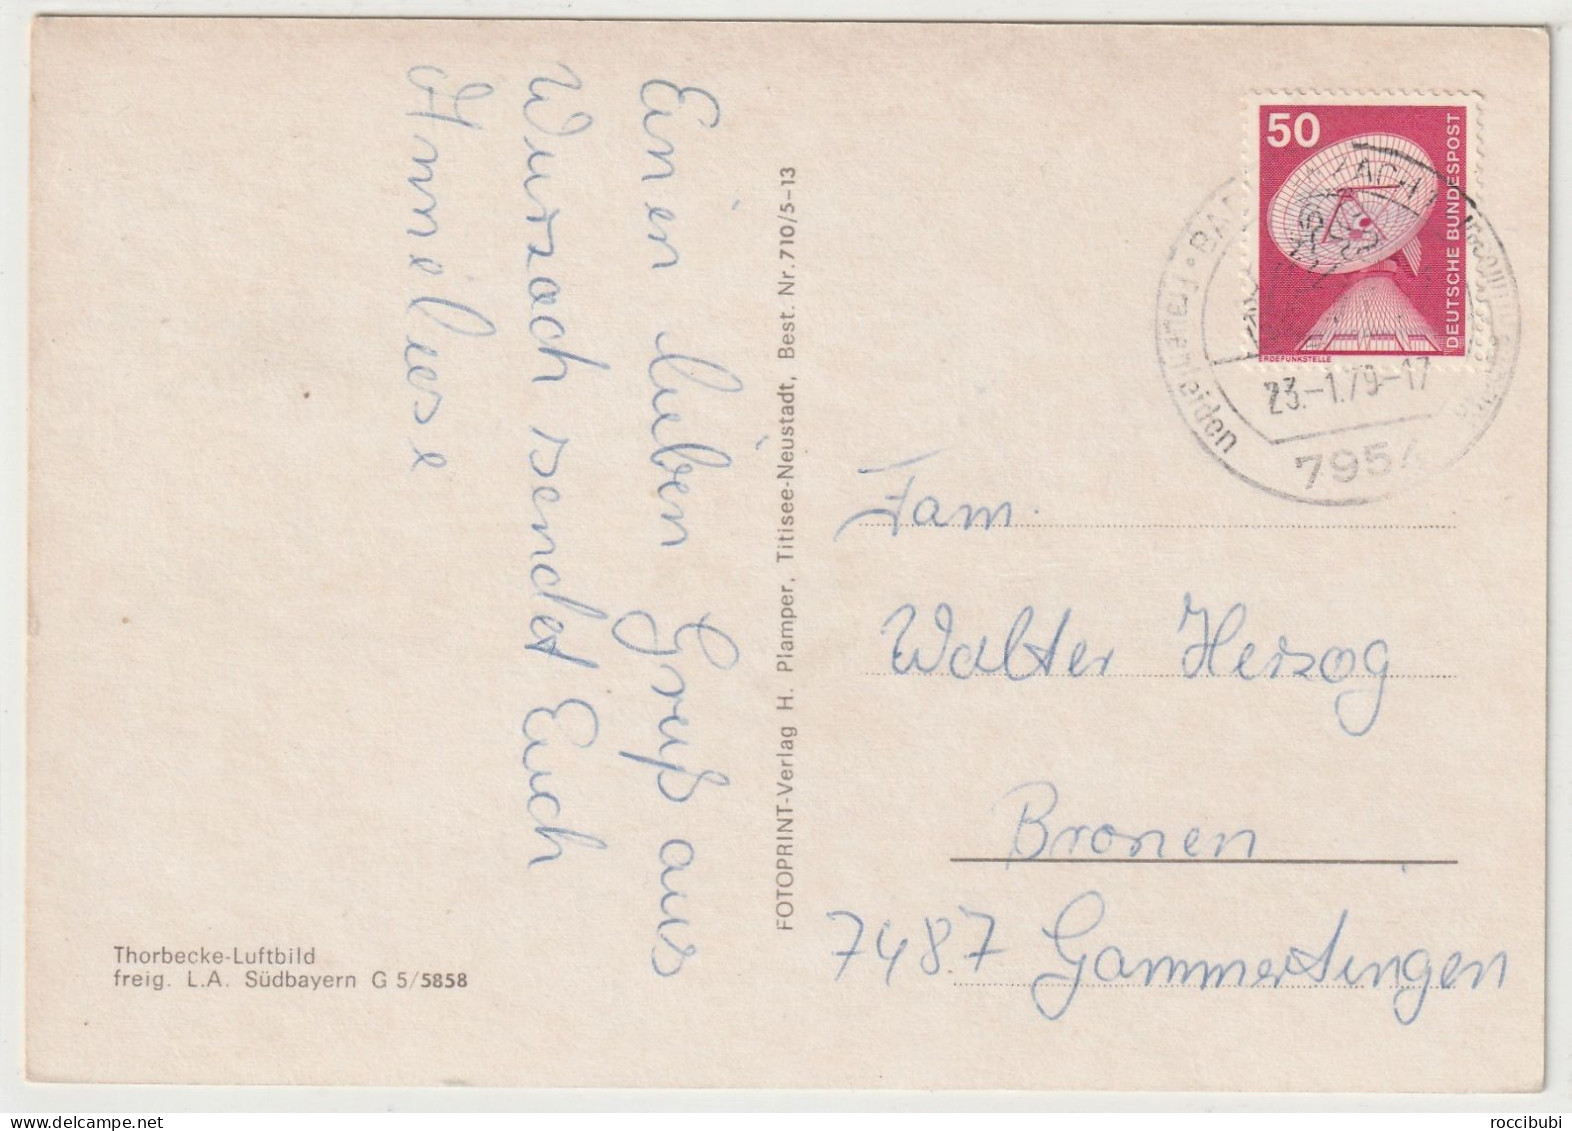 Einen lieben Gruß aus
Wurzach sendet Euch
Anneliese
Thorbecke-Luftbild
freig. L.A. Südbayern G 5/5858
FOTOPRINT-Verlag H. Plamper, Titisee-Neustadt, Best. Nr. 710/5-13
50
DEUTSCHE BUNDESPOST
ERDEFUNKSTELLE
23.-1.79-17
7954
Frauenleiden
Fam.
Walter Herzog
Bronen
7487 Gammertingen
roccibubi